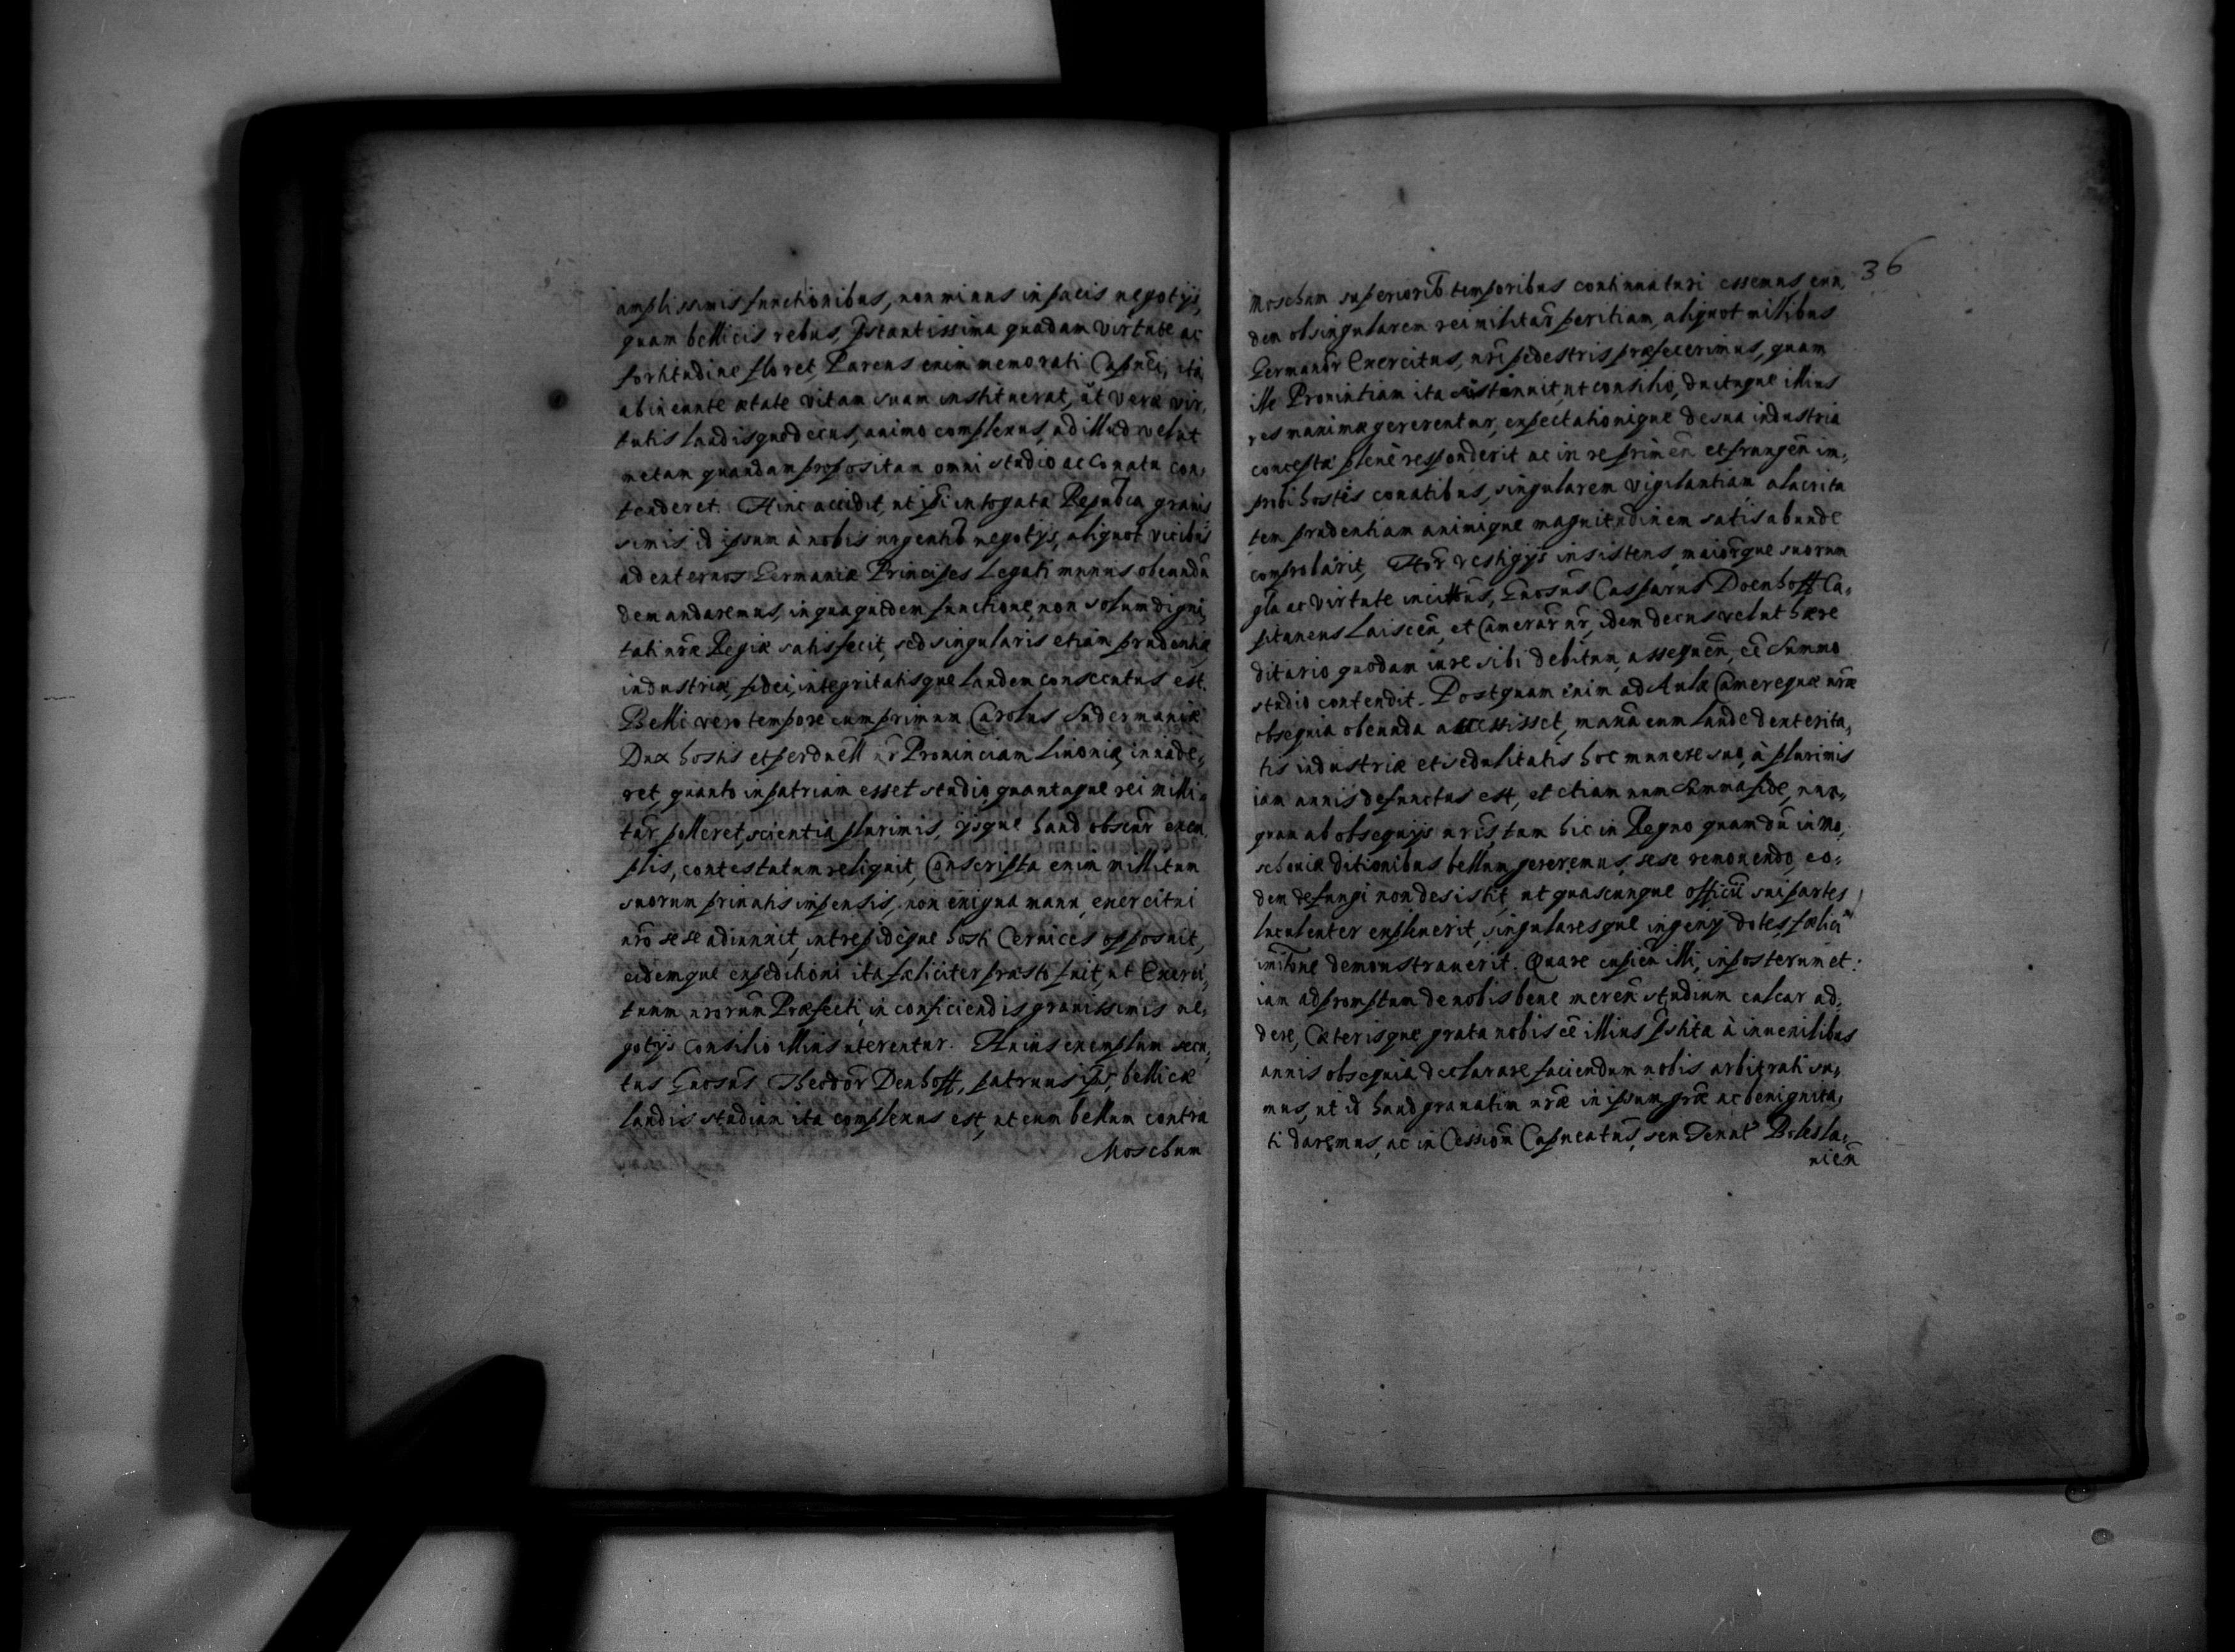 amplissimis functionibus, non minus in pacis negotijs,
quam bellicis rebus, p̃stantissima quadam virtute ac
fortitudine floret, Parens enim memorati Capnei, ita
ab ineunte ætate vitam suam instituerat, ut veræ vir,
tutis laudisque decus, animo complexus, ad illud velut
metam quandam propositam omni studio ac Conatu con,
tenderet. Hinc accidit, ut ip̃i in togata Repub̃ca grauis
simis id ipsum à nobis urgentib negotijs, aliquot vicibus
ad externos Germaniæ Principes Legati munus obeundũ
demandaremus, in qua quidem functione, non solum digni,
tati nr̃æ Regiæ satisfecit, sed singularis etiam prudentiæ,
industriæ, fidei, integritatisque laudem consecutus est.
Belli vero tempore cum primum Carolus Sudermaniæ
Dux hostis et perduell nr̃ Prouinciam Liuoniæ, inuade,
ret, quanto in patriam esset studio, quantaque rei milli,
tar̃ polleret, scientia plurimis, ijsque haud obscur̃ exem,
plis, contestatum reliquit, Conscripta enim millitum
suorum priuatis impensis, non exigua manu, exercitui
nr̃o sese adiunxit, intrepideque hosti Ceruices opposuit,
eidemque expeditioni ita fæliciter præsto fuit, ut Exerci,
tuum nrorum Præfecti, in conficiendis grauissimis ne,
gotijs Consilio illius uterentur. Huius exemplum secu,
tus Gnosus Theodor̃ Denhoff, patruus ip̃s, bellicæ
laudis studium ita complexus est, ut cum bellum contra
Moschum
36
Moschum superiorib temporibus continuaturi essemus eun,
dem ob singularem rei militar̃ peritiam, aliquot millibus
Germanor̃ Exercitus, nr̃i pedestris præfecerimus, quam
ille Prouintiam ita sustinuit, ut consilio, ductuque illius
res maximæ gererentur, expectationique de sua industria
conceptæ plenè responderit ac in reprimen̄ et frangen̄ im,
probi hostis conatibus, singularem vigilantiam alacrita
tem prudentiam animique magnitudinem satis abunde
comprobarit, Hor̃ vestigijs insistens, maiorq̃ue suorum
gl̃a ac virtute incitatus, Gnosus Casparus Doenhoff Ca,
pitaneus Laiscen̄, et Camerar̃ nr̃, idem decus velut hære
ditario quodam iure sibi debitum, assequen̄, c̃e summo
studio contendit. Postquam enim ad Aulæ Cameræquæ nr̃æ
obsequia obeunda accessisset, maxã cum laude dexterita,
tis industriæ et sedulitatis hoc munere suo, à plurimis
iam annis defunctus est, et etiam num summa fide, nun,
quam ab obsequijs nr̃is, tam hic in Regno quam dũ in Mo,
schouiæ ditionibus bellum gereremus, sese remouendo, eo,
dem defungi non desistit, ut quascunque officii sui partes
luculenter expleuerit, singularesque ingenij dotes fælici
imit̃one demonstrauerit. Quare cupien̄ illi, in posterum et:
iam ad promptum de nobis bene meren̄ studium calcar ad,
dere, Cæterisque grata nobis c̃e illius p̃stita à iuuenilibus
annis obsequia declarare faciendum nobis arbitrati su,
mus, ut id haud grauatim nr̃æ in ipsum gr̃æ ac benignita,
ti daremus, ac in Cession̄ Capneatus, seu Tenut Bolesla,
uien̄